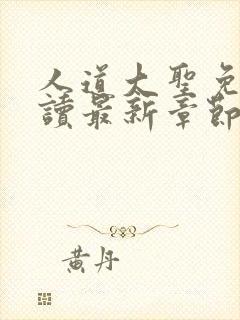 人道大聖免
讀最新章節
黃丹